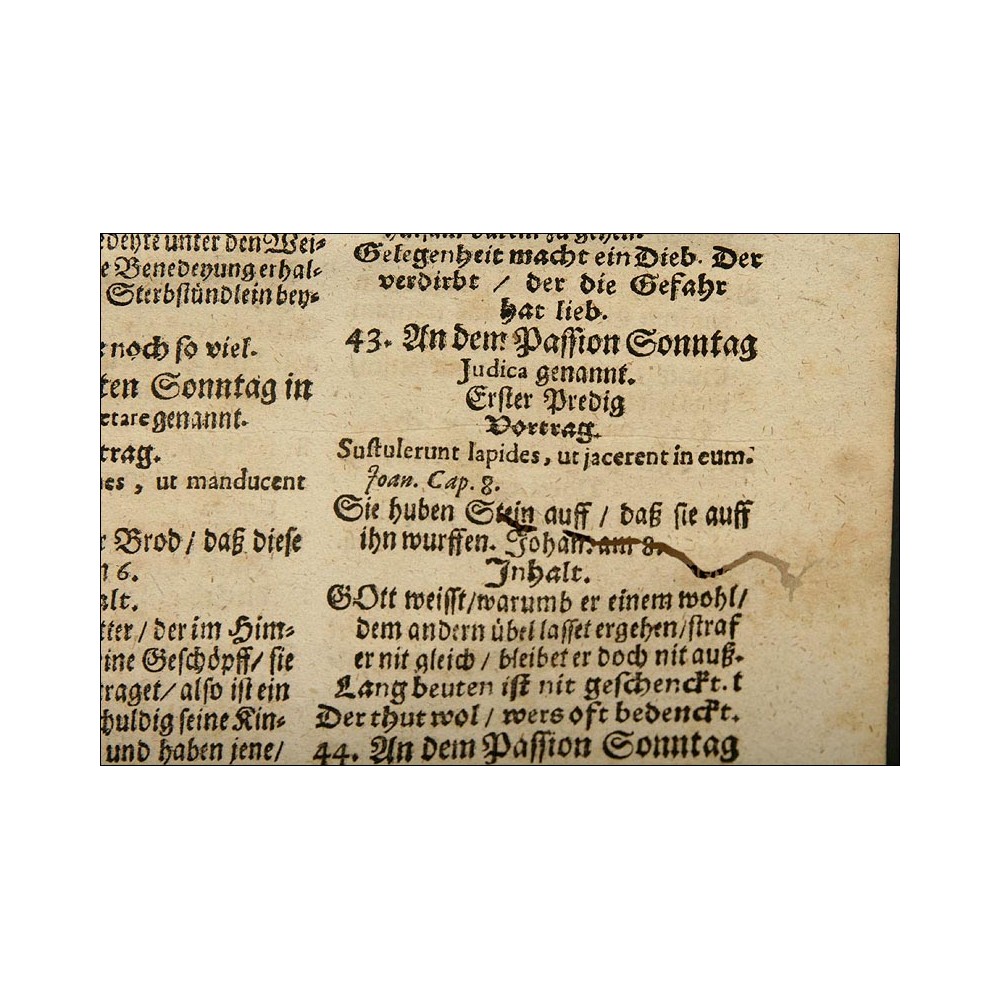 unter den Wei-
e Benedeyung erhal-
Sterbstündlein bey-
noch so viel.
ten Sonntag in
etare genannt.
trag.
es, ut manducent
r Brod / daß diese
6.
alt.
tter / der im Him-
ine Geschöpff / sie
raget / also ist ein
huldig seine Kin-
und haben jene /
Gelegenheit macht ein Dieb. Der
verdirbt / der die Gefahr
hat lieb.
43. An dem Passion Sonntag
Judica genannt.
Erster Predig
Vortrag.
Sustulerunt lapides, ut jacerent in eum.
Joan. Cap. 8.
Sie huben Stein auff / daß sie auff
ihn wurffen. Johan. am 8.
Inhalt.
GOtt weisst / warumb er einem wohl /
dem andern übel lasset ergehen / straf
er nit gleich / bleibet er doch nit auß.
Lang beuten ist nit geschenckt. t
Der thut wol / wers oft bedenckt.
44. An dem Passion Sonntag